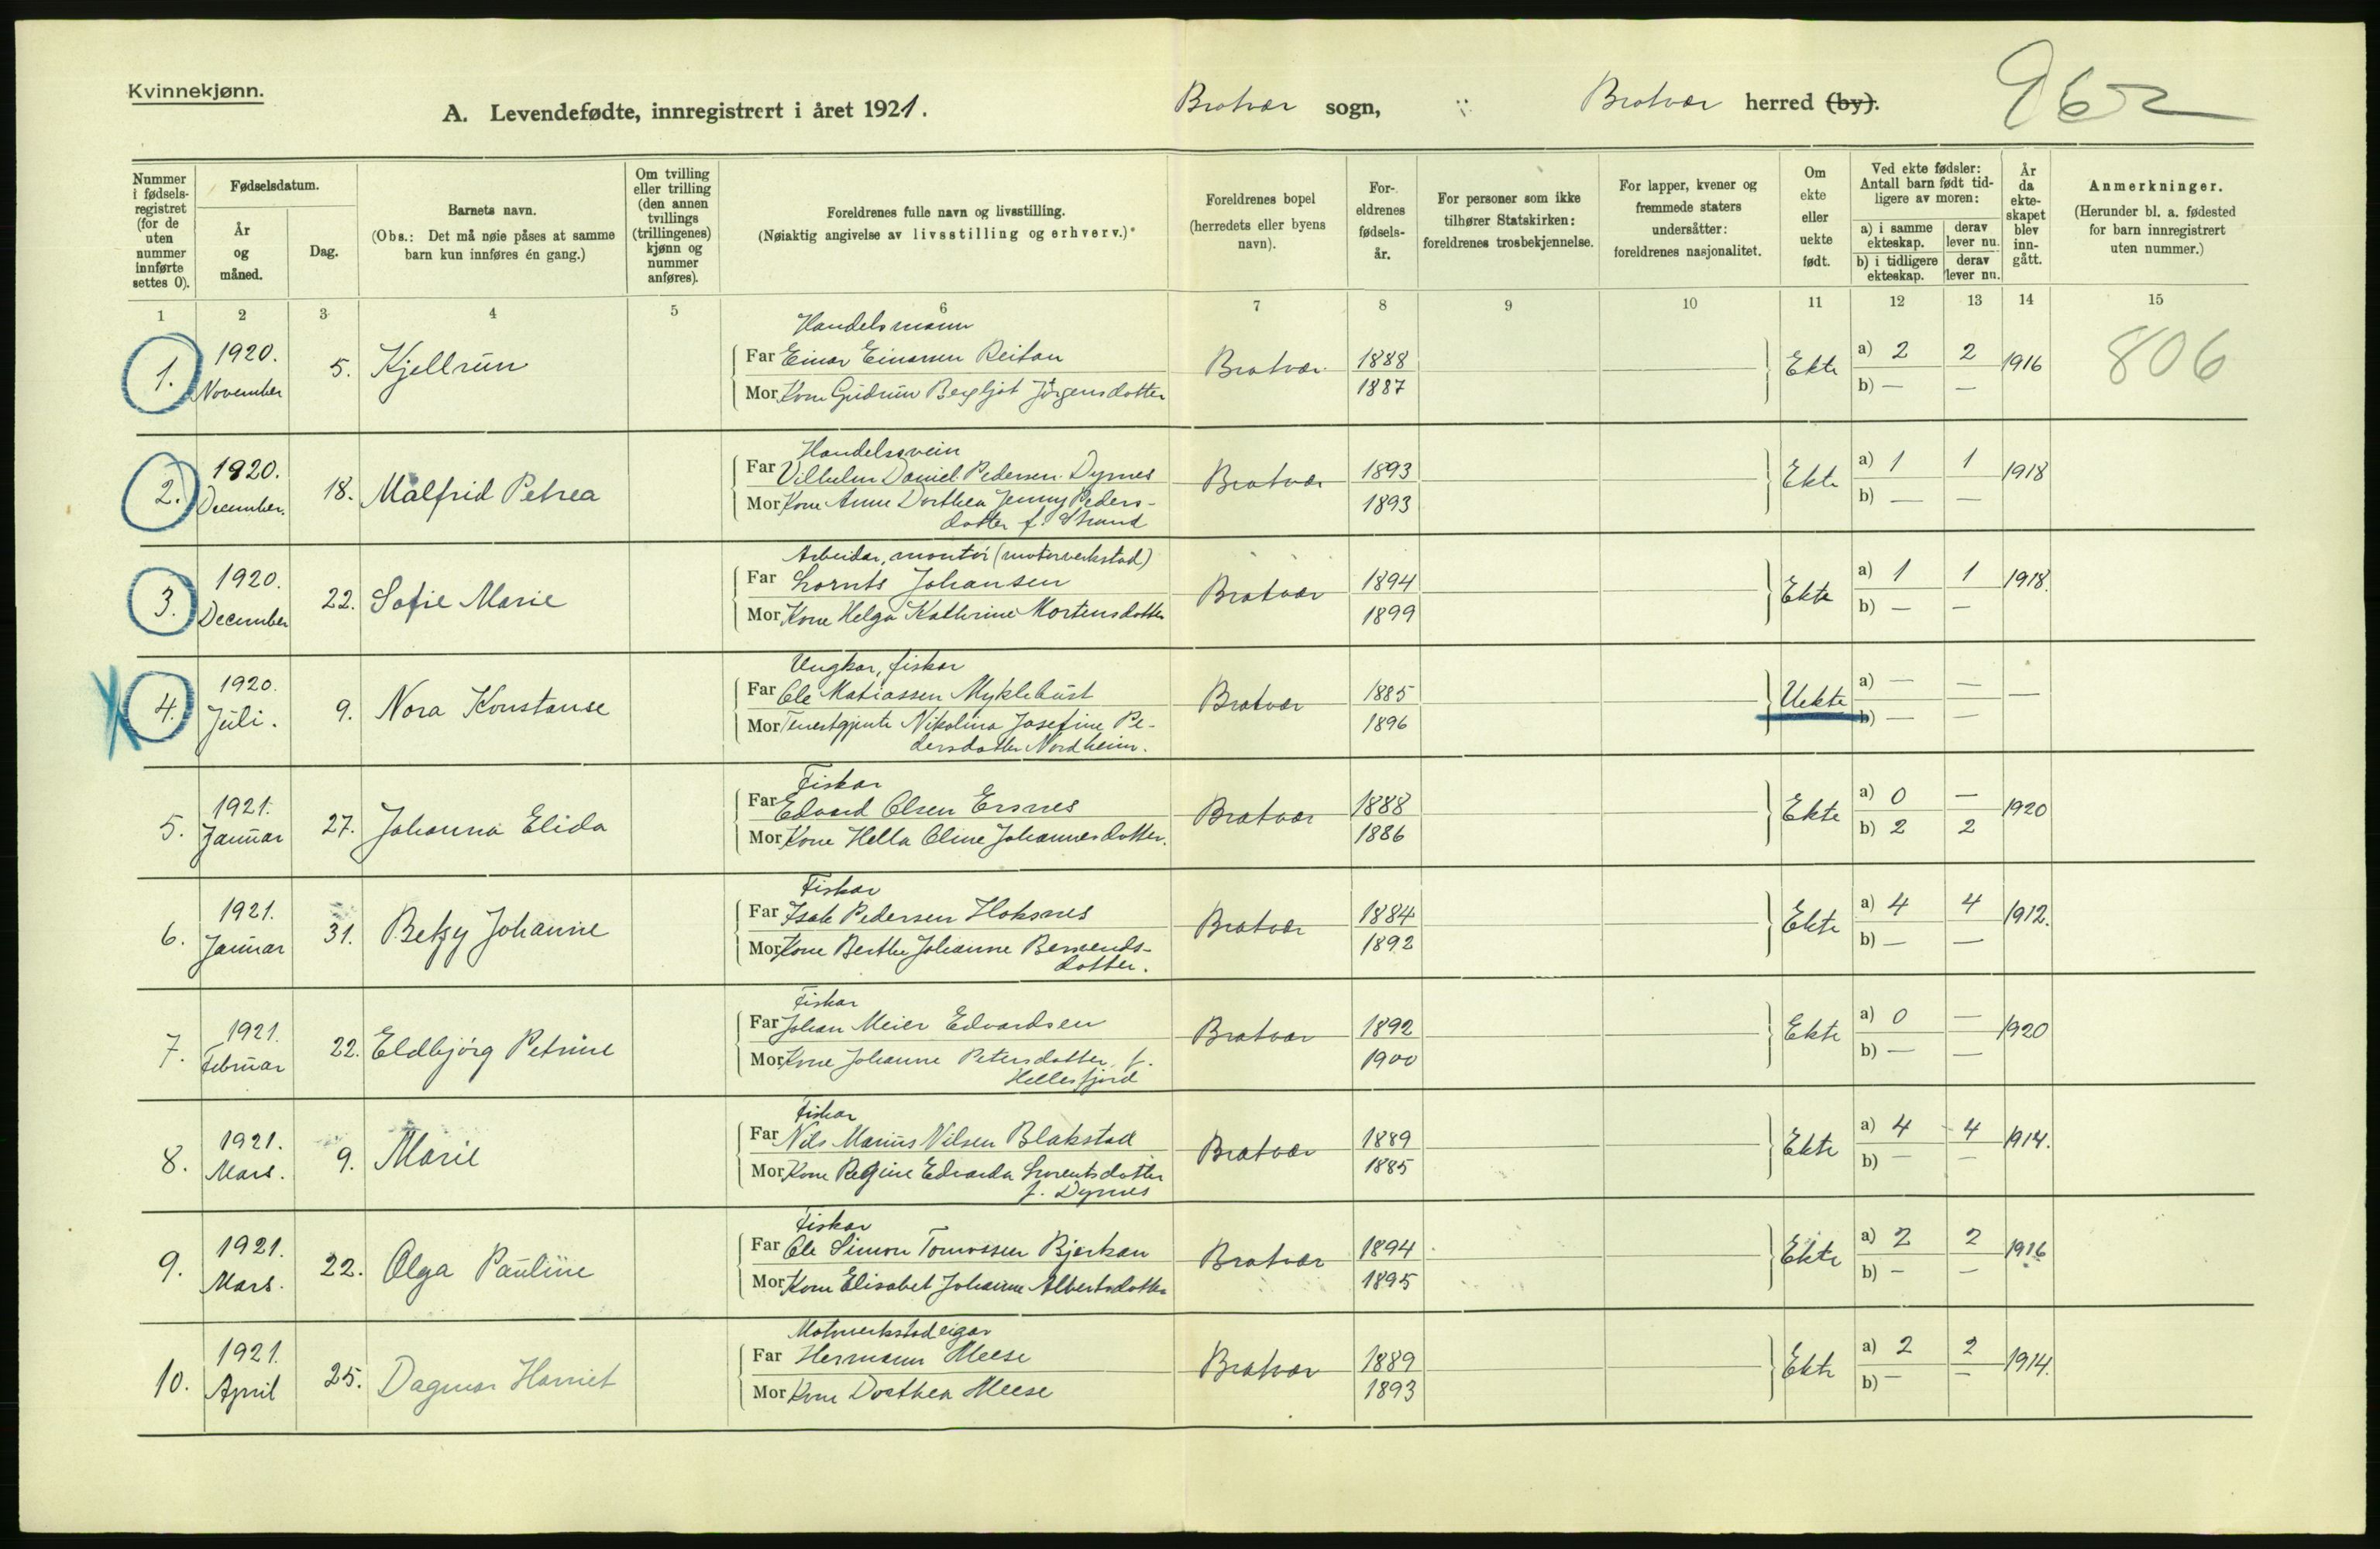 Kvinnekjønn.
A. Levendefødte, innregistrert i året 1921.
Bratvær sogn, Bratvær herred (by).
962
Nummer i fødselsregistret (for de uten nummer innførte settes 0).
Fødselsdatum.
År og måned.
Dag.
Barnets navn.
(Obs.: Det må nøie påses at samme barn kun innføres én gang.)
Om tvilling eller trilling (den annen tvillings (trillingenes) kjønn og nummer anføres).
Foreldrenes fulle navn og livsstilling.
(Nøiaktig angivelse av livsstilling og erhverv.)*
Foreldrenes bopel (herredets eller byens navn).
Foreldrenes fødselsår.
For personer som ikke tilhører Statskirken: foreldrenes trosbekjennelse.
For lapper, kvener og fremmede staters undersåtter: foreldrenes nasjonalitet.
Om ekte eller uekte født.
Ved ekte fødsler: Antall barn født tidligere av moren:
a) i samme ekteskap.
derav lever nu.
b) i tidligere ekteskap.
derav lever nu.
År da ekteskapet blev inngått.
Anmerkninger.
(Herunder bl. a. fødested for barn innregistrert uten nummer.)
1 2 3 4 5 6 7 8 9 10 11 12 13 14 15
Handelsmann
1. 1920. November 5. Kjellrun
Far Einar Einarsen Reitan Bratvær 1888 Ekte a) 2 2 1916 806
Mor Kone Gudrun Bergljot Jørgensdotter 1887 b) — —
Handelssvein
2. 1920. December. 18. Målfrid Petrea
Far Vilhelm Daniel Pedersen Dyrnes Bratvær 1893 Ekte a) 1 1 1918
Mor Kone Anne Dorthea Jenny Peders-
dotter f. Strand 1893 b) — —
Arbeidar, montör (motorverkstad)
3. 1920. December 22. Sofie Marie
Far Lornts Johansen Bratvær 1894 Ekte a) 1 1 1918.
Mor Kone Helga Kathrine Mortensdotter 1899 b) — —
Ungkar, fiskar
4. 1920. Juli. 9. Nora Konstanse
Far Ole Matiassen Myklebust Bratvær 1885 Uekte a) — — —
Mor Tenestgjente Nikolina Josefine Pe-
dersdotter Nordheim. 1896 b) — —
Fiskar
5. 1921. Januar 27. Johanna Elida
Far Edvard Olsen Ersnes Bratvær 1888 Ekte a) 0 — 1920
Mor Kone Hella Oline Johannesdotter. 1886 b) 2 2
Fiskar
6. 1921. Januar 31. Betzy Johanne
Far Isak Pedersen Hoksnes Bratvær 1884 Ekte a) 4 4 1912.
Mor Kone Berthe Johanne
dotter. 1892 b) — —
Fiskar
7. 1921. Februar 22. Eldbjörg Petrine
Far Johan Meier Edvardsen Bratvær 1892 Ekte a) 0 — 1920
Mor Kone Johanne Petersdotter f.
Hellesfjord 1900 b) — —
Fiskar
8. 1921. Mars. 9. Marie
Far Nils Marius Nilsen Blakstad Bratvær 1889 Ekte a) 4 4 1914.
Mor Kone Regine Edvarda Lorentsdotter
f. Dyrnes 1885 b) — —
Fiskar
9. 1921. Mars. 22. Olga Pauline
Far Ole Simon Tomassen Bjerkan Bratvær 1894 Ekte a) 2 2 1916
Mor Kone Elisabet Johanne Albertsdotter 1895 b) — —
Motorverkstadeigar
10. 1921. April 25. Dagmar Harriet
Far Hermann Meese Bratvær 1889 Ekte a) 2 2 1914.
Mor Kone Dorthea Meese 1893 b) — —